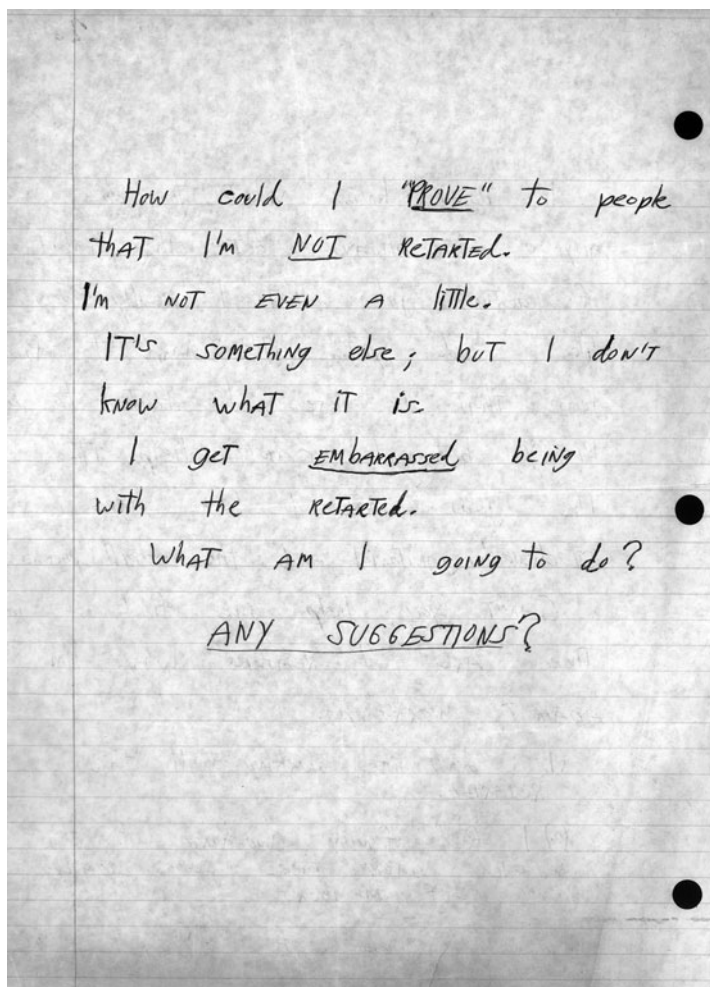 How could I "PROVE" to people
that I'm NOT RETARTED.
I'm NOT EVEN A little.
IT's something else; but I don't
know what it is.
I get EMBARRASSED being
with the RETARTED.
What am I going to do?
ANY SUGGESTIONS?